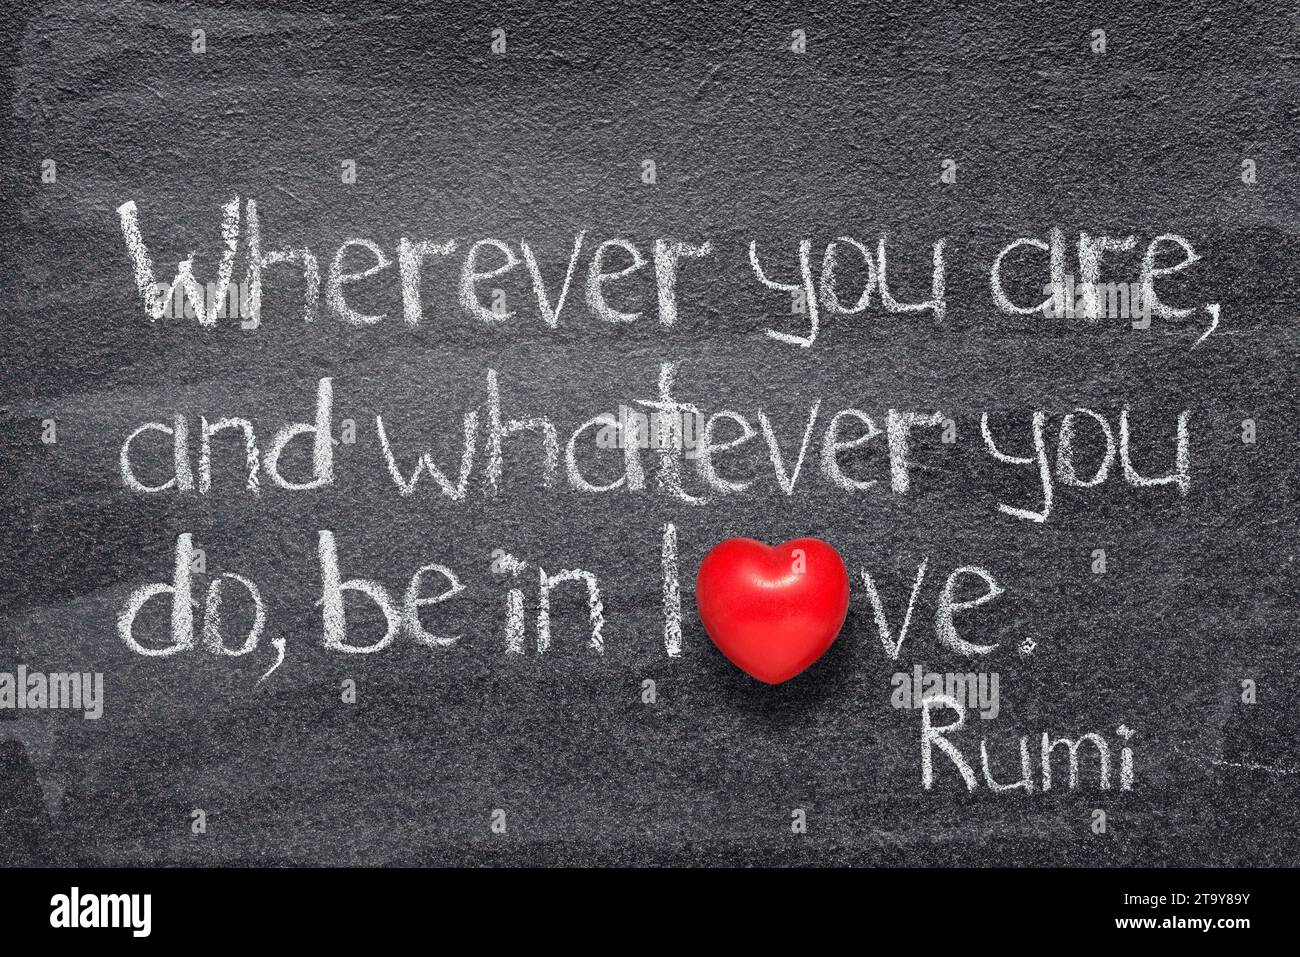 Wherever you are,
and whatever you
do, be in l❤ve.
Rumi
alamy
alamy
Image ID: 2T9Y89Y
www.alamy.com